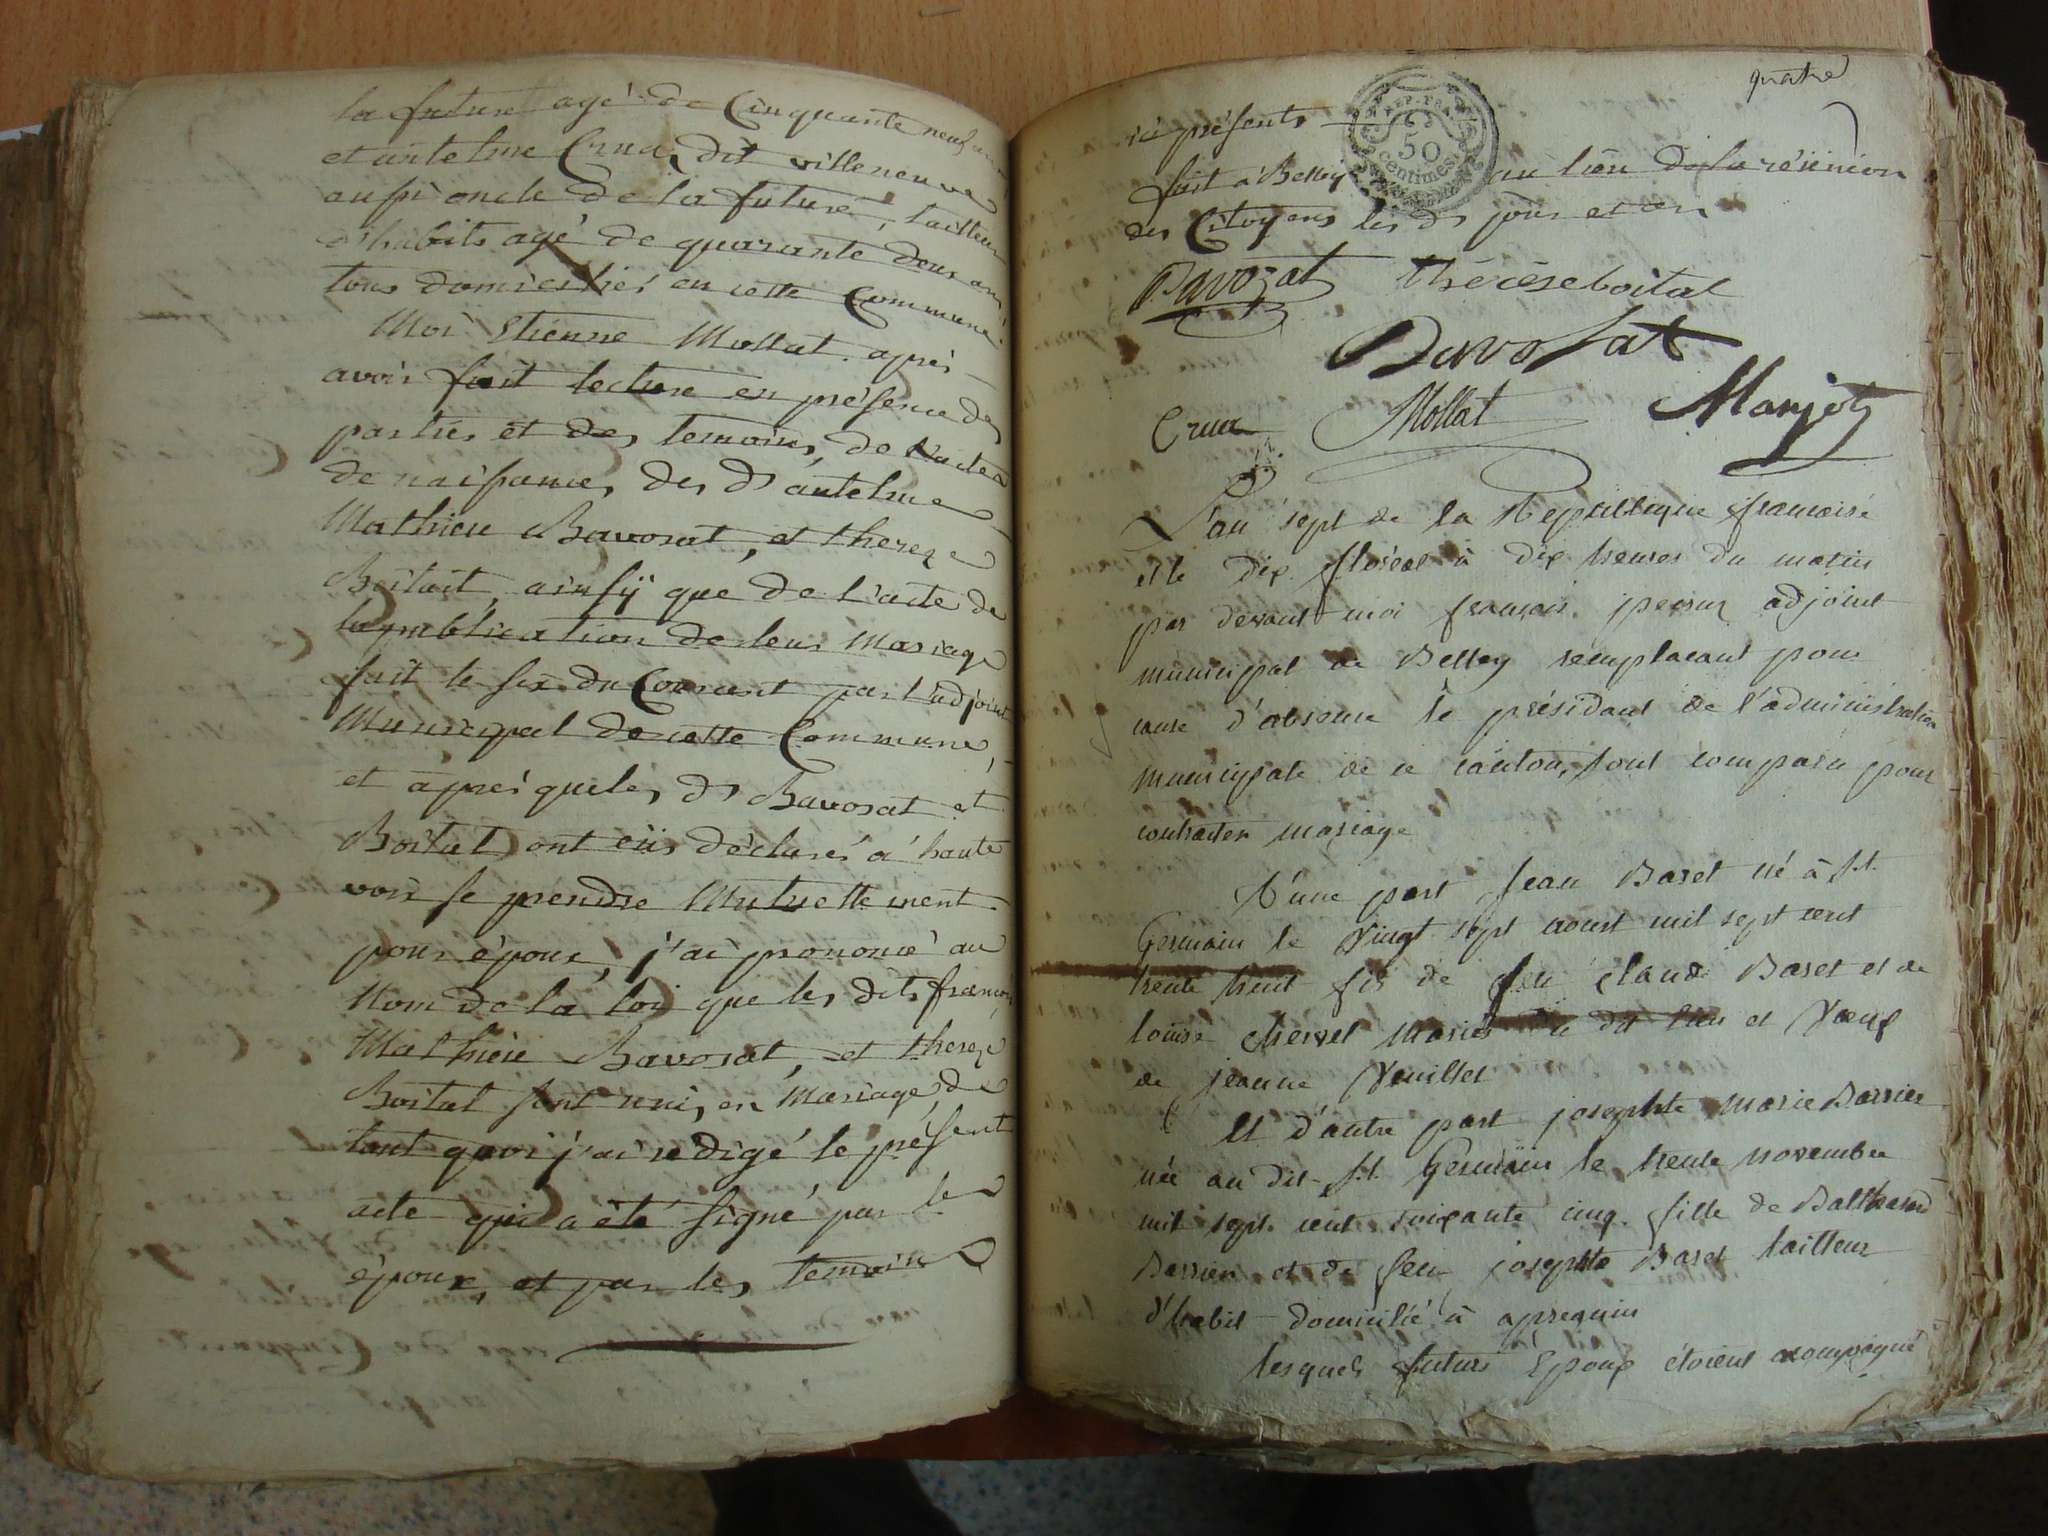 la future agé de Cinquante neuf ans
et antelme Crux dit villeneuve
aussi oncle de la future, tailleur
d'habits agé de quarante deux ans
tous domiciliés en cette Commune.
Moi Etienne Mollat après
avoir fait lecture en présence des
parties et des temoins, de l'acte
de naissance, des ds antelme
Mathieu Bavosat, et thereze
Boitait, ainsÿ que de l'acte de
la publication de leur Mariage
fait le six du Courant par l'adjoint
Municipal de cette Commune,
et après que les ds Bavosat et
Boital ont eüs déclarés à haute
voix se prendre Mutuellement
pour époux, j'ai prononcé au
Nom de la loi que les dits françois
Mathieu Bavosat, et thereze
Boital sont unis en Mariage de
tout quoi j'ai redigé le présent
acte qui a été signé par les
époux, et par les temoins
quatre
ici présents
REP. FRA
50
centimes
fait à Belley au lieu de la réunion
des Citoyens les ds jour et an
Bavozat thérèse boital
Bavosat
Crux Mollat Marjot
L'an sept de la République francaise
et le dix floréal à dix heures du matin
par devant moi francois adjoint
municipal de Belley remplacant pour
cause d'absence le présidant de l'administration
municipale de ce canton, sont comparu pour
contracter mariage
D'une part Jean Baret né à St.
Germain le vingt sept aoust mil sept cent
trente huit fils de feu Claude Baret et de
louise chervet mariés du dit lieu et Veuf
de jeanne Vuillet
Et d'autre part josephte marie Darrier
née au dit St. Germain le trente novembre
mil sept cent soixante cinq fille de Balthesard
Darrier et de feue josephte Baret tailleur
d'habit domicilié à apregnin
lesquels futurs Epoux étoient accompagné